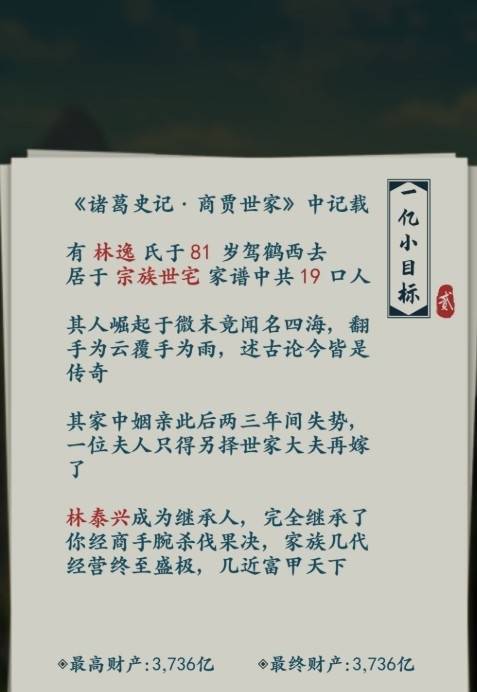 《诸葛史记·商贾世家》中记载
一亿小目标
贰
有 林逸 氏于 81 岁驾鹤西去
居于 宗族世宅 家谱中共 19 口人
其人崛起于微末竟闻名四海，翻
手为云覆手为雨，述古论今皆是
传奇
其家中姻亲此后两三年间失势，
一位夫人只得另择世家大夫再嫁
了
林泰兴成为继承人，完全继承了
你经商手腕杀伐果决，家族几代
经营终至盛极，几近富甲天下
◈最高财产:3,736亿
◈最终财产:3,736亿